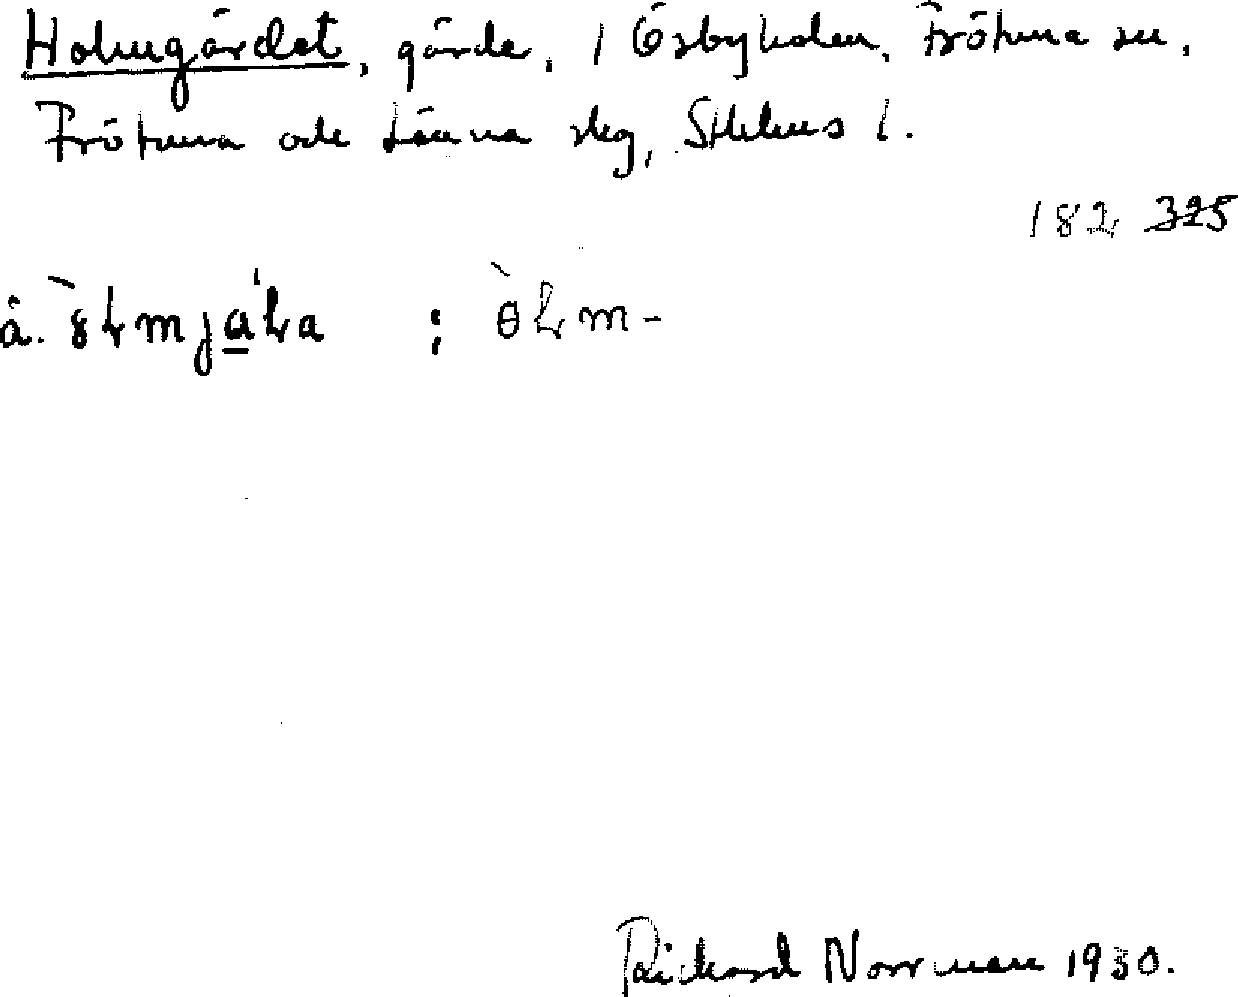 Holmgärdet, gärde, i Ösbyholm, Frötuna sn,
Frötuna och Länna skg, Sthlms l.
182 325
å.
Rickard Norrman 1930.